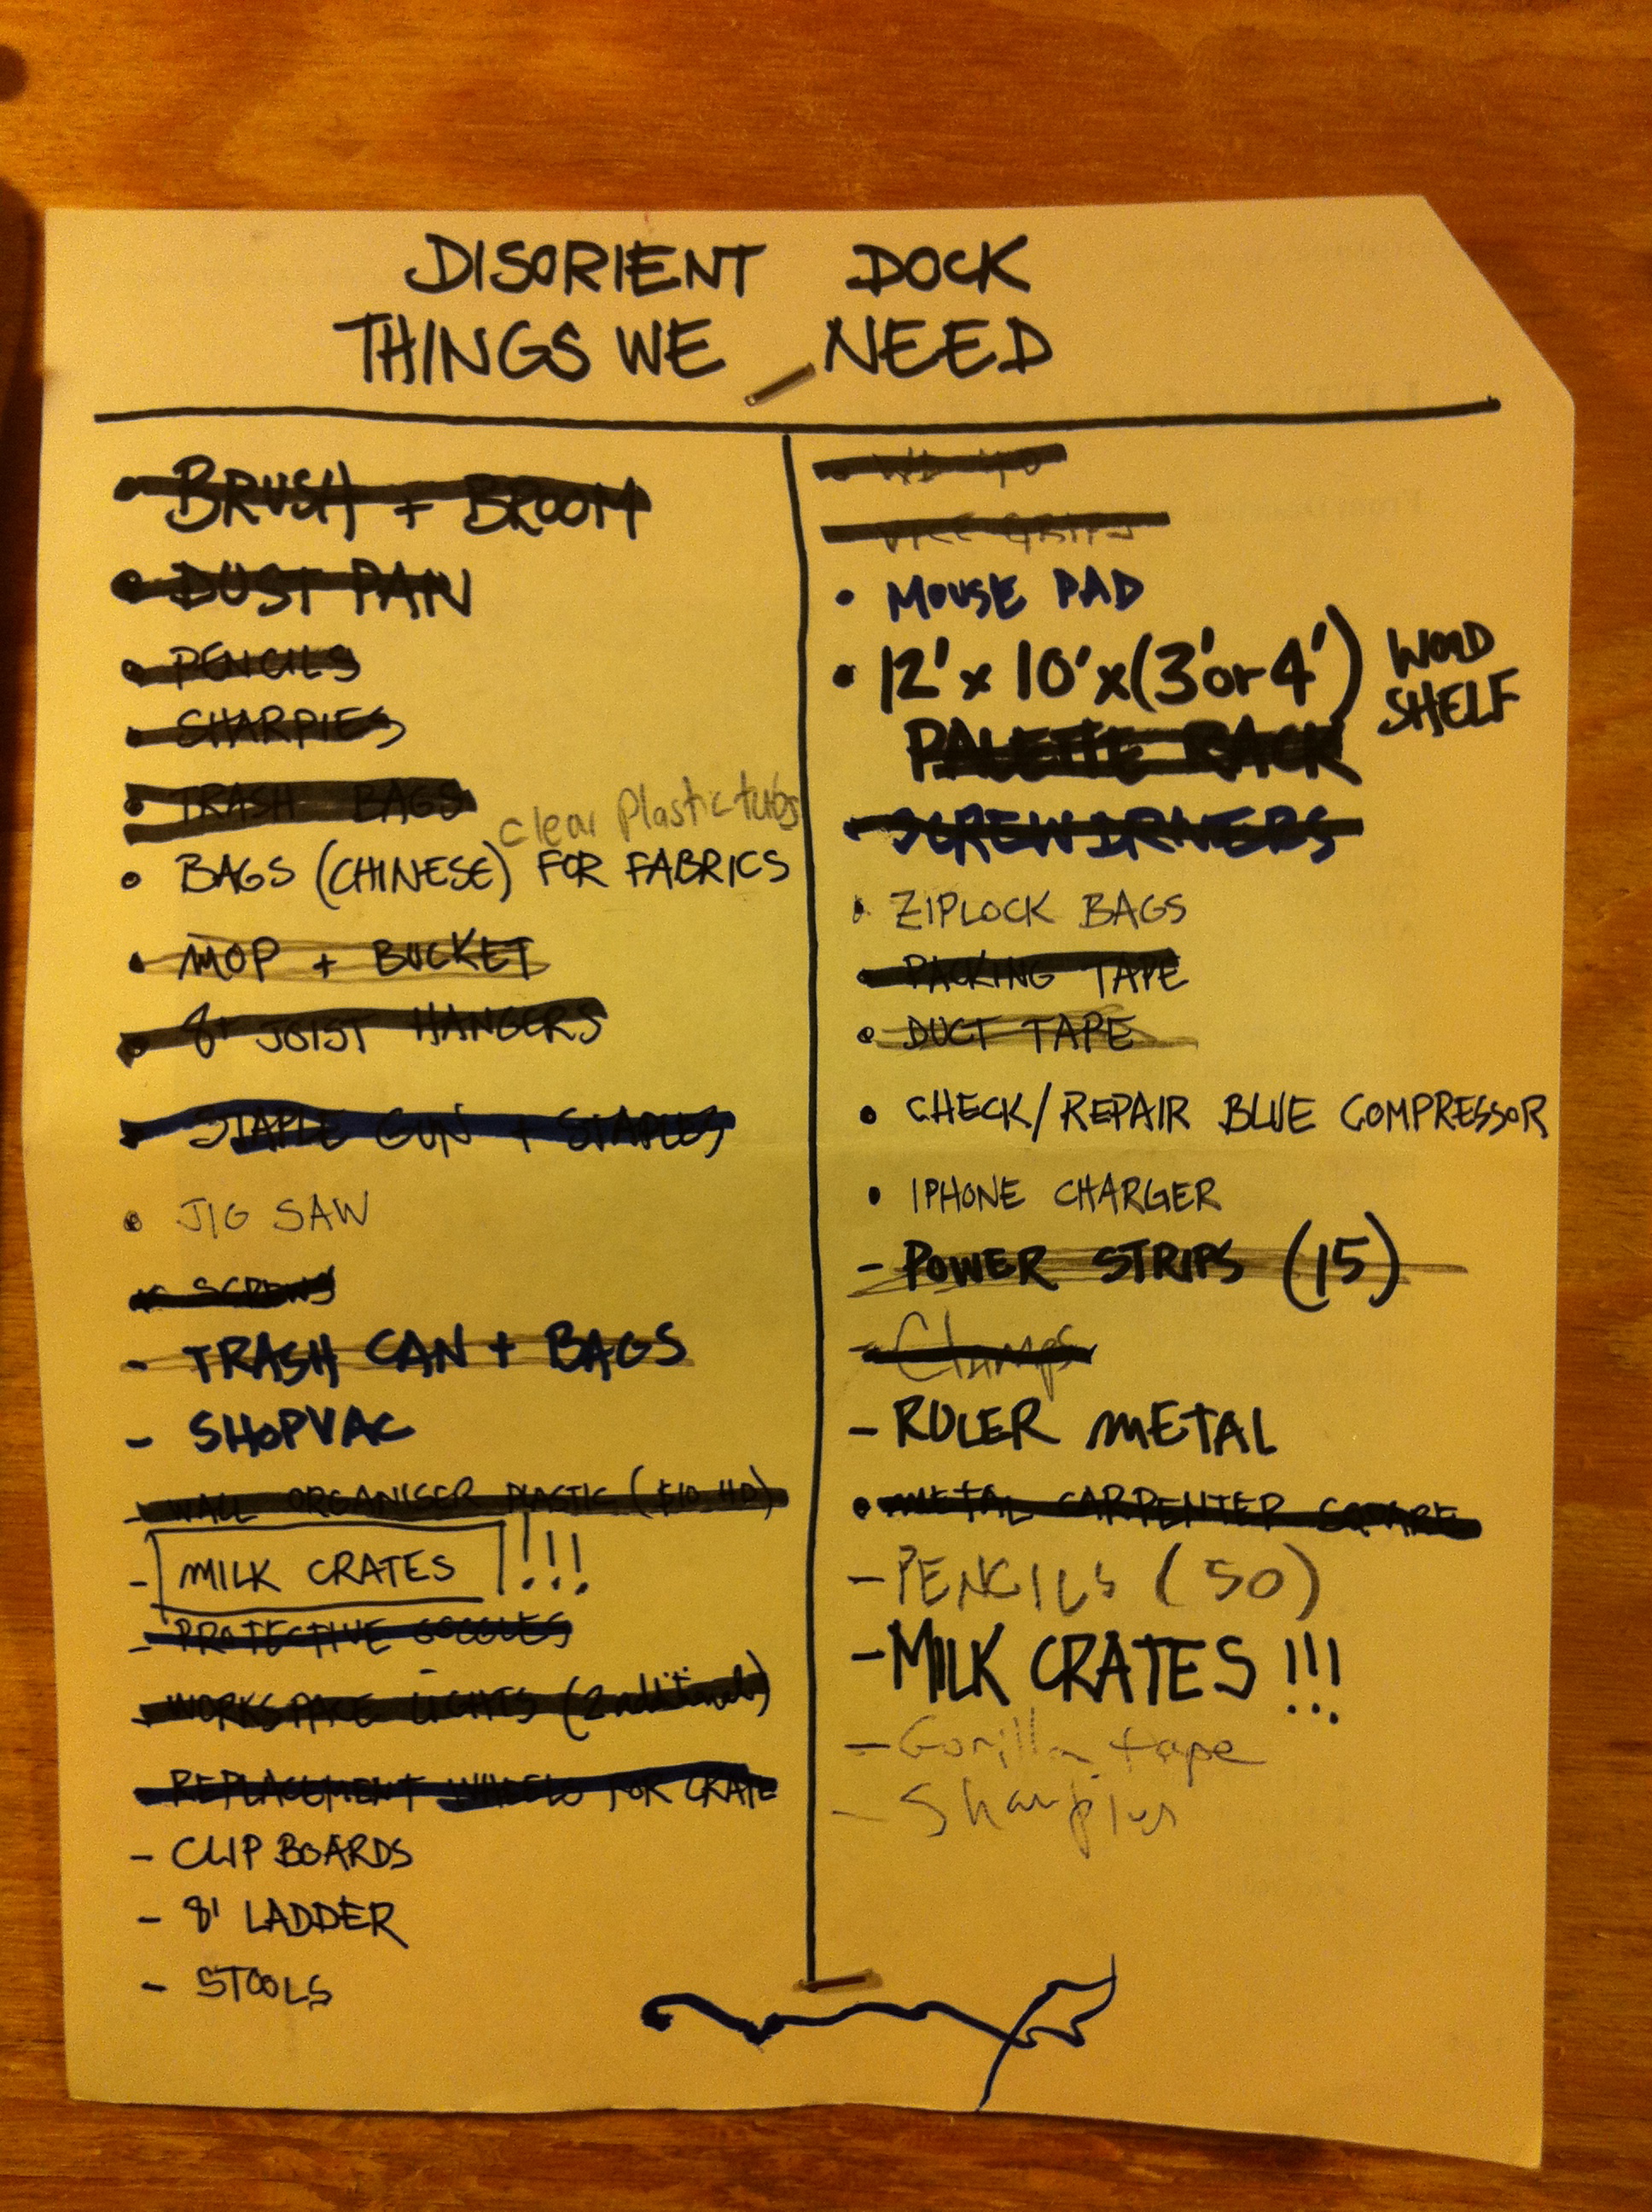 DISORIENT DOCK
THINGS WE NEED
• BRUSH + BROOM
• DUST PAN
• PENCILS
• SHARPIES
• TRASH BAGS
clear Plastic tubs
• BAGS (CHINESE) FOR FABRICS
• MOP + BUCKET
• 8' JOIST HANGERS
• STAPLE GUN + STAPLES
• JIG SAW
• SCREWS
- TRASH CAN + BAGS
- SHOPVAC
- WALL ORGANISER PLASTIC ($10 HD)
- MILK CRATES !!!
- PROTECTIVE GOGGLES
- WORKSPACE LIGHTS (2 additionals)
- REPLACEMENT WHEELS FOR CRATE
- CLIP BOARDS
- 8' LADDER
- STOOLS
• WD 40
• VICE GRIPS
• MOUSE PAD
• 12' x 10' x (3' or 4') WOOD
SHELF
PALETTE RACK
• SCREWDRIVERS
• ZIPLOCK BAGS
• PACKING TAPE
• DUCT TAPE
• CHECK/REPAIR BLUE COMPRESSOR
• IPHONE CHARGER
- POWER STRIPS (15)
- Clamps
- RULER METAL
• METAL CARPENTER SQUARE
- PENCILS (50)
- MILK CRATES !!!
- Gorilla tape
- Sharpies